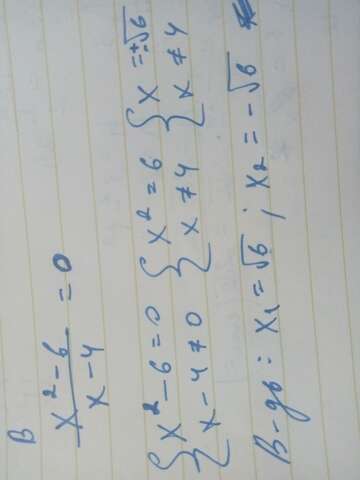 В
x²-6/x-4 = 0
{x²-6=0 {x²=6 {x=±√6
{x-4≠0 {x≠4 {x≠4
В-дь: x₁=√6; x₂=-√6